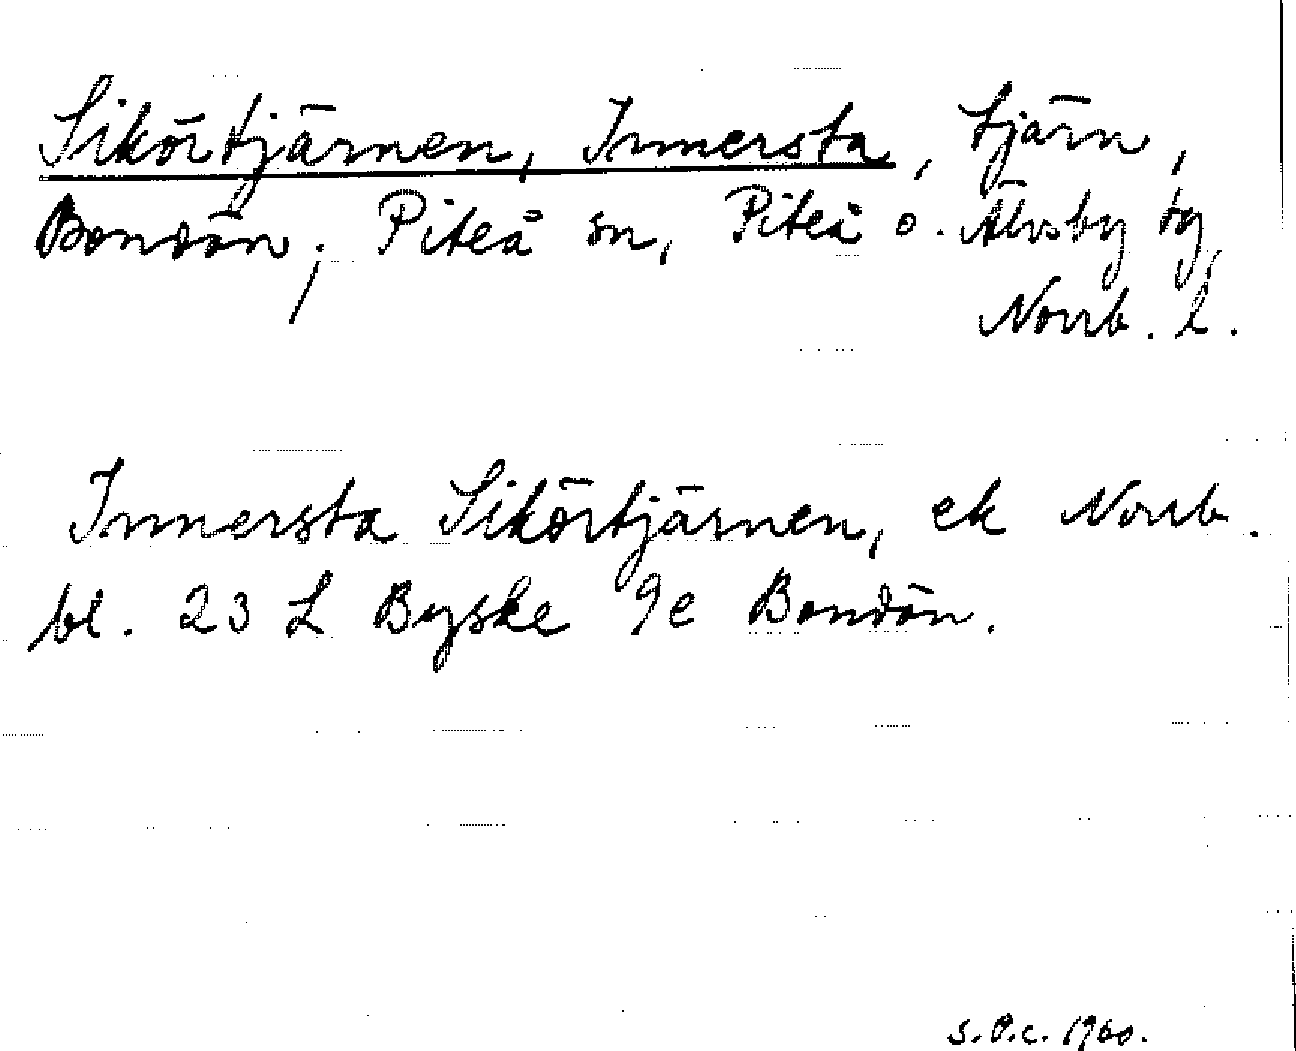 Sikörtjärnen, Innersta, tjärn,
Bondön, Piteå sn, Piteå o. Älvsby tg,
Norrb. l.
Innersta Sikörtjärnen, ek Norrb.
bl. 23 L Byske 9e Bondön.
S.O.C. 1960.